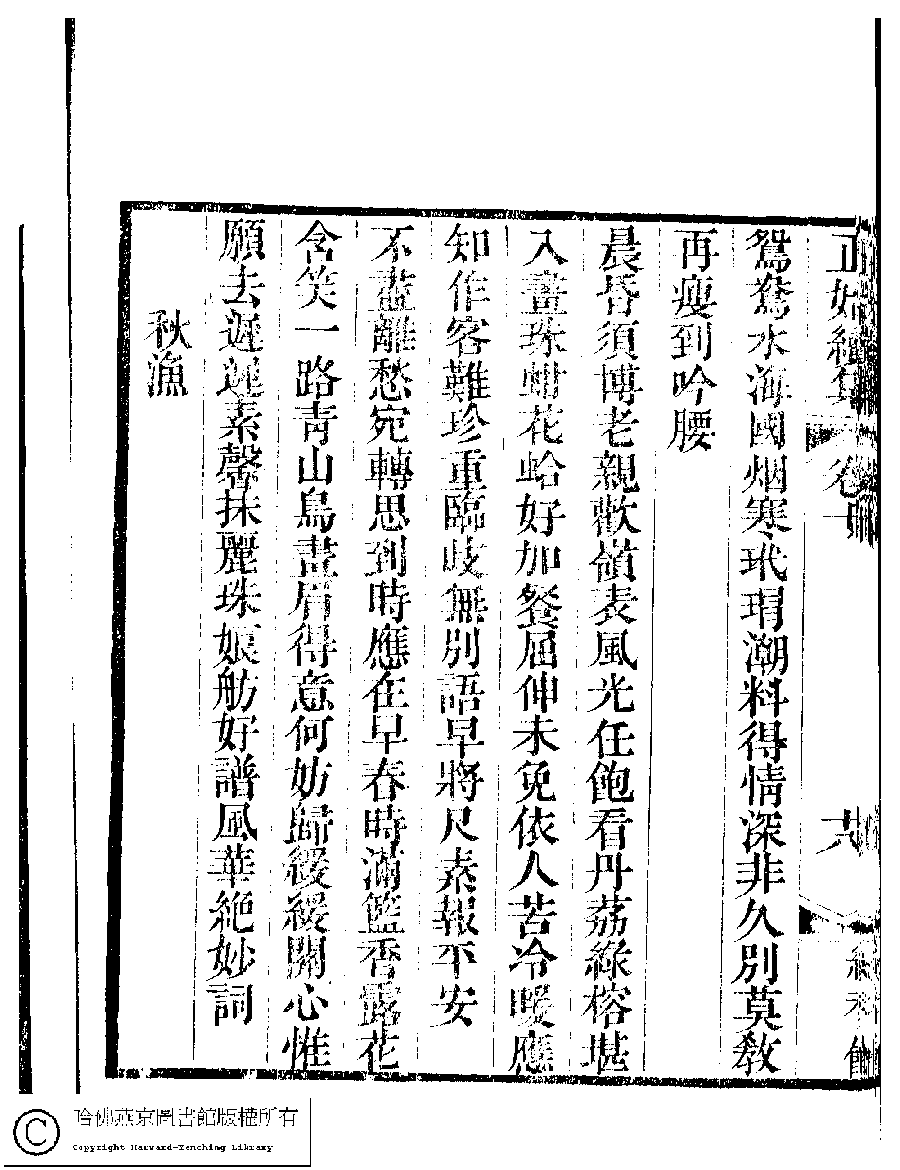 正始續集 卷十
鴛鴦水海國烟寒玳瑁潮料得情深非久別莫敎
再瘦到吟腰
晨昏須博老親歡嶺表風光任飽看丹荔綠榕堪
入畫珠蚶花蛤好加餐屈伸未免依人苦冷暖應
知作客難珍重臨歧無別語早將尺素報平安
不盡離愁宛轉思到時應在早春時滿籃香露花
含笑一路靑山鳥畫眉得意何妨歸緩緩關心惟
願去遲遲素馨抹麗珠娘舫好譜風華絶妙詞
秋漁
哈佛燕京圖書館版權所有
Copyright Harvard-Yenching Library